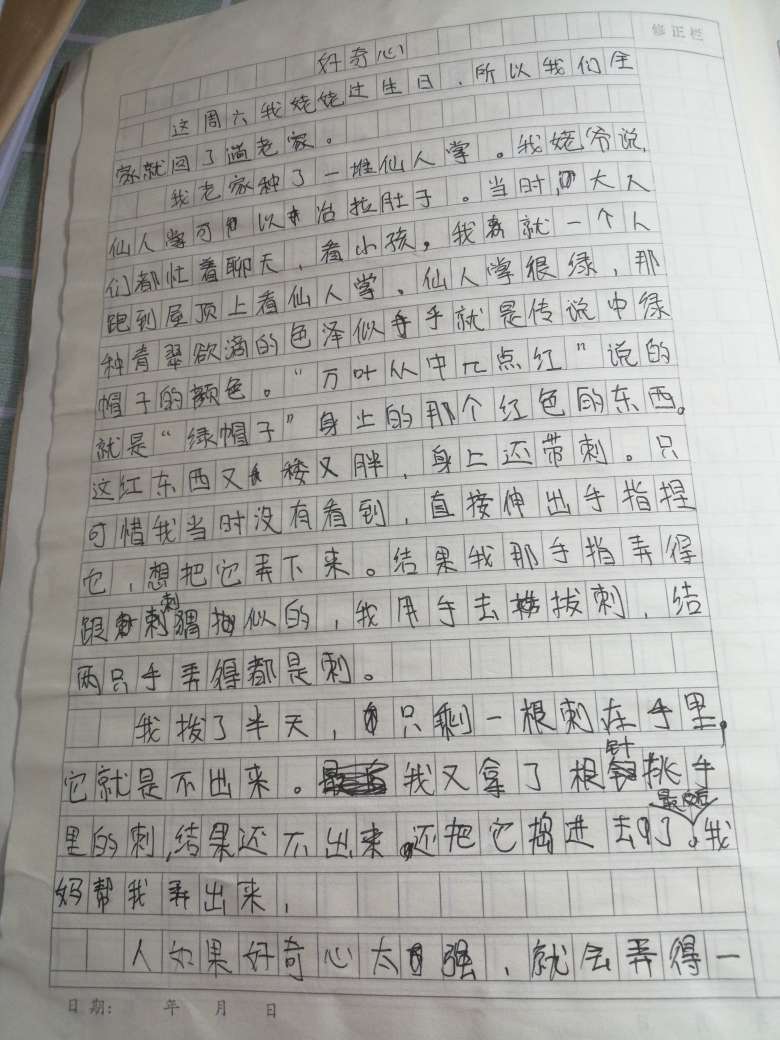 修正栏
好奇心
这周六我姥姥过生日，所以我们全
家就回了满老家。
我老家种了一堆仙人掌。我姥爷说，
仙人掌可以治拉肚子。当时，大人
们都忙着聊天，看小孩，我就一个人
跑到屋顶上看仙人掌。仙人掌很绿，那
种青翠欲滴的色泽似乎就是传说中绿
帽子的颜色。“万叶从中几点红”说的
就是“绿帽子”身上的那个红色的东西。
这红东西又矮又胖，身上还带刺。只
可惜我当时没有看到，直接伸出手指捏
它，想把它弄下来。结果我那手指弄得
跟刺猬似的，我用手去拔刺，结
两只手弄得都是刺。
我拨了半天，只剩一根刺在手里，
它就是不出来。我又拿了根针挑手
里的刺，结果还不出来，还把它捣进去了。最后我
妈帮我弄出来，
人如果好奇心太强，就会弄得一
日期： 年 月 日